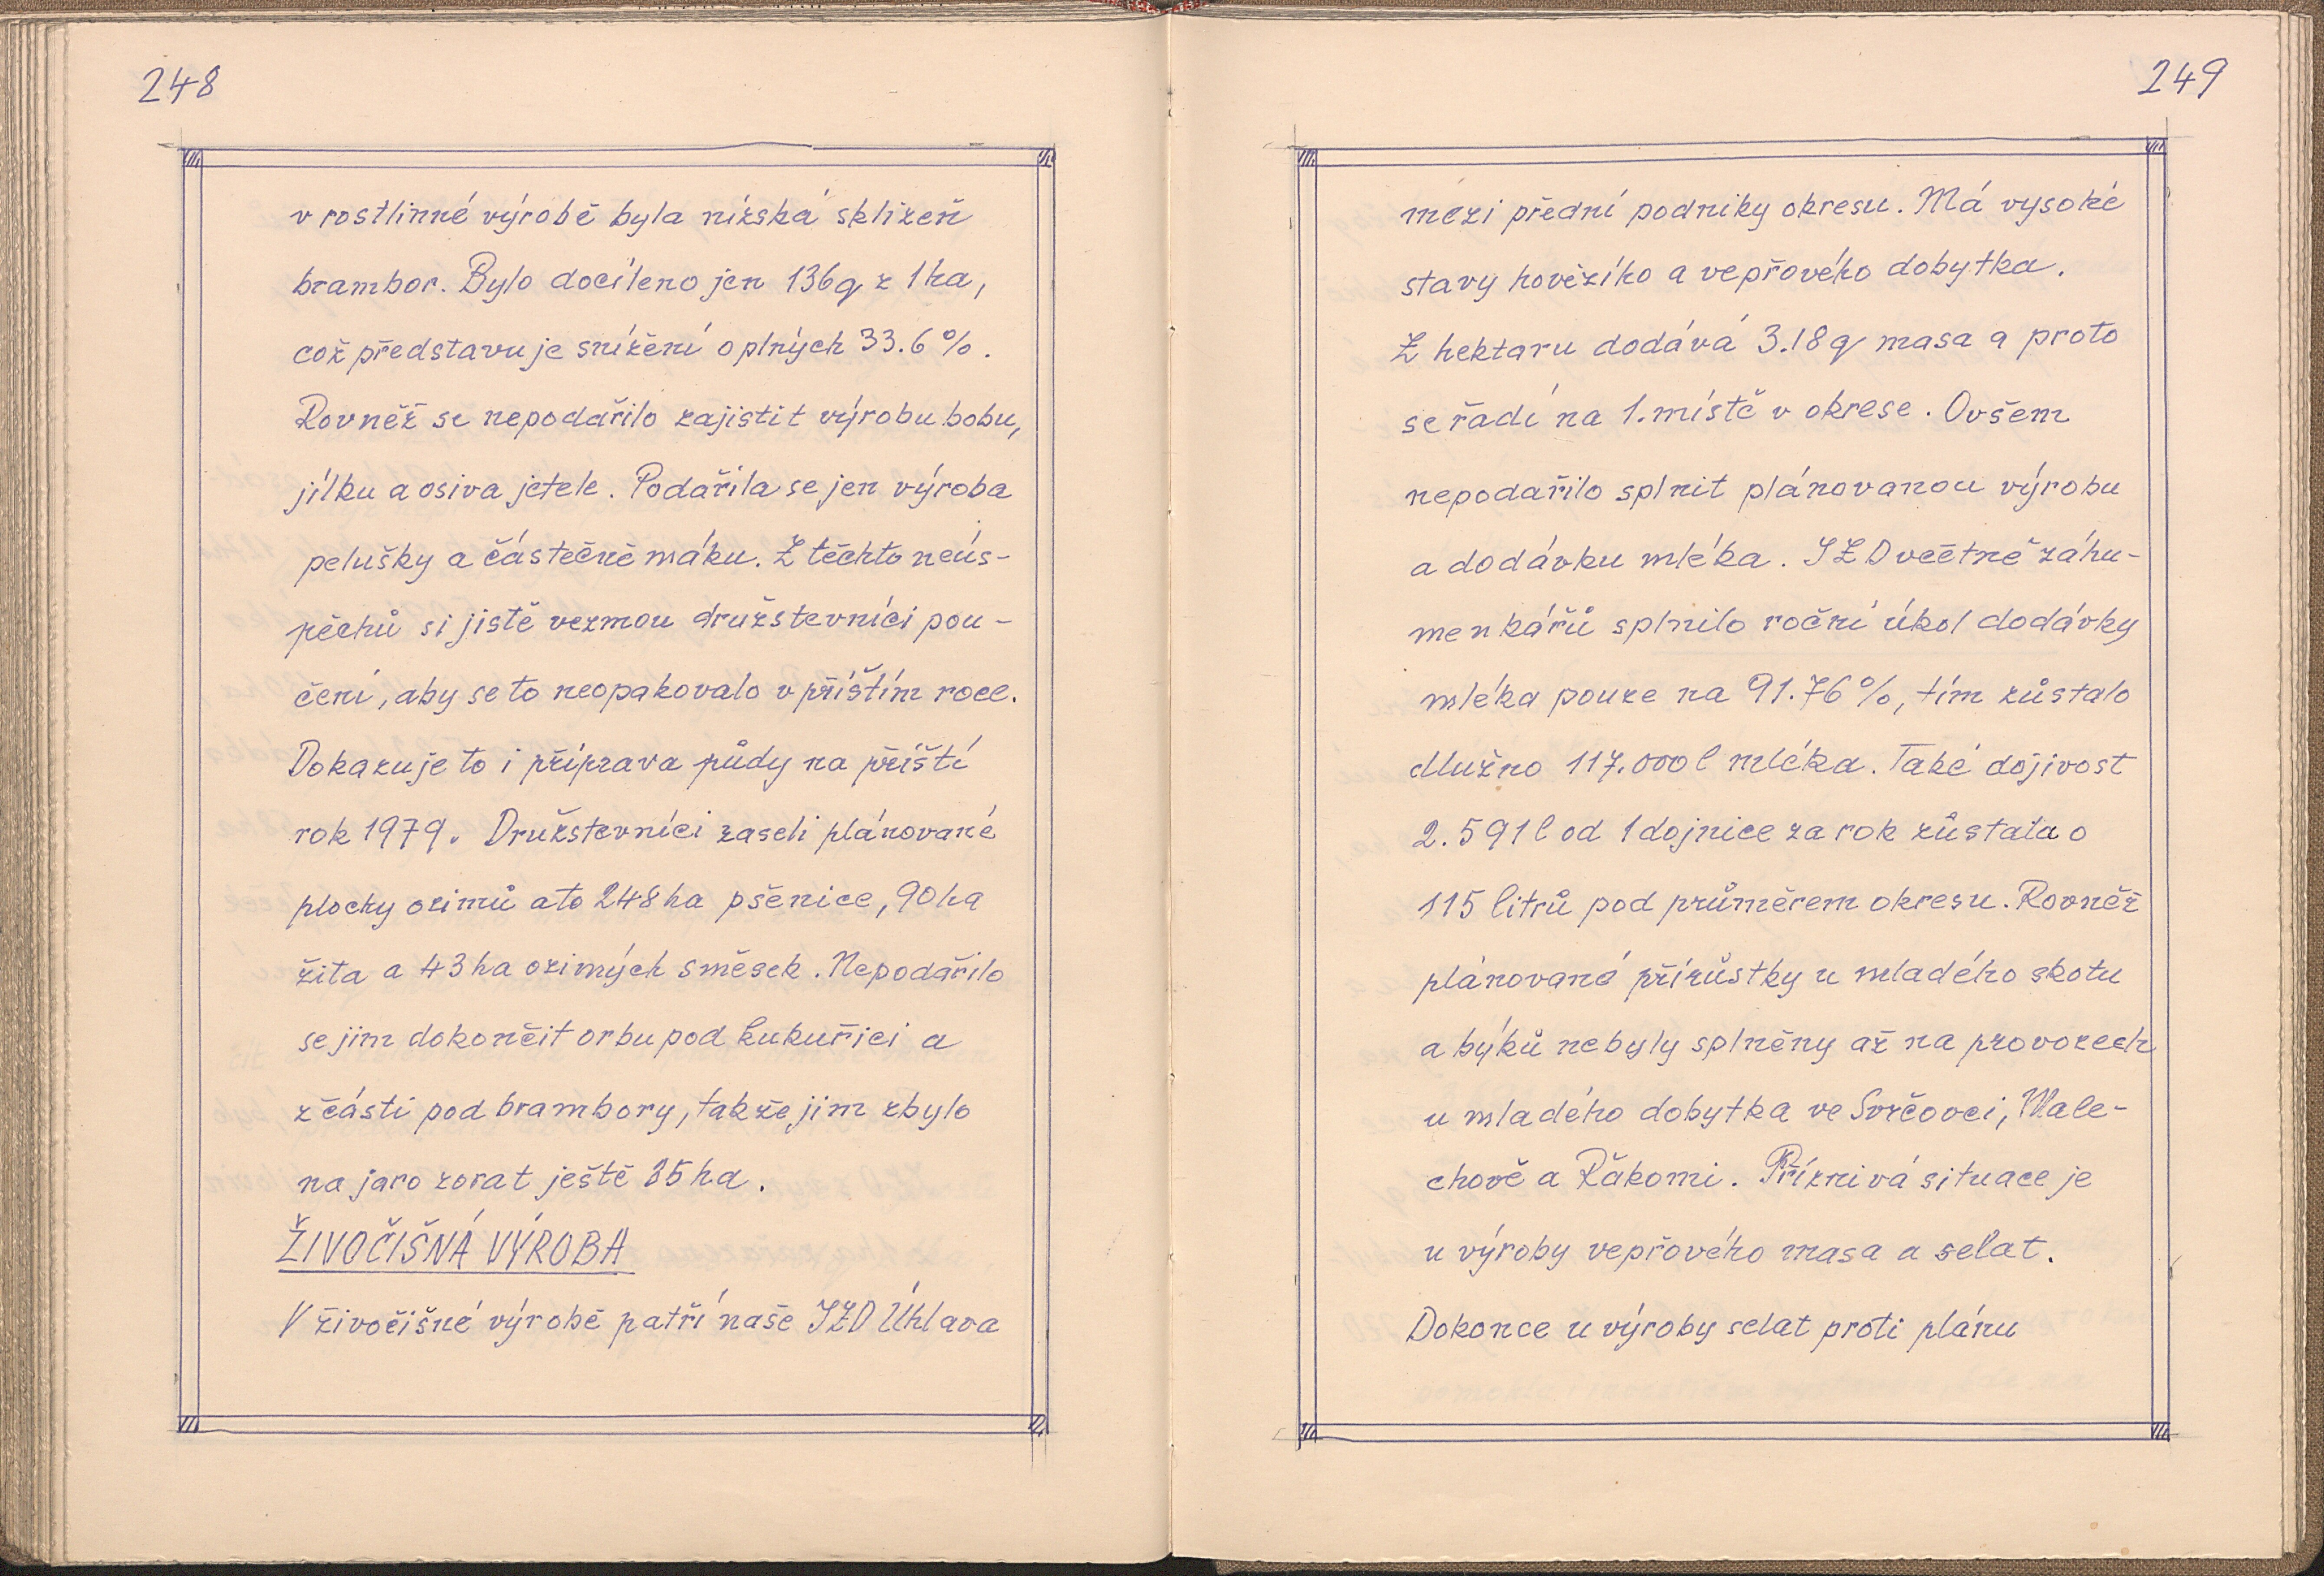 248
v rostlinné výrobě byla nízská sklizeň
brambor. Bylo docíleno jen 136q z 1ha,
což představuje snížení o plných 33.6%.
Rovněž se nepodařilo zajistit výrobu bobu,
jílku a osiva jetele. Podařila se jen výroba
pelušky a částečně máku. Z těchto neús-
pěchů si jistě vezmou družstevníci pou-
čení, aby se to neopakovalo v příštím roce.
Dokazuje to i příprava půdy na příští
rok 1979. Družstevníci zaseli plánované
plochy ozimů a to 248 ha pšenice, 90 ha
žita a 43 ha ozimých směsek. Nepodařilo
se jim dokončit orbu pod kukuřici a
zčásti pod brambory, takže jim zbylo
na jaro zorat ještě 35 ha.
ŽIVOČIŠNÁ VÝROBA
V živočišné výrobě patří naše JZD Úhlava
249
mezi přední podniky okresu. Má vysoké
stavy hovězího a vepřového dobytka.
Z hektaru dodává 3.18 q masa a proto
se řadí na 1. místě v okrese. Ovšem
nepodařilo splnit plánovanou výrobu
a dodávku mléka. JZD včetně záhu-
menkářů splnilo roční úkol dodávky
mléka pouze na 91.76%, tím zůstalo
dlužno 117.000 l mléka. Také dojivost
2.591 l od 1 dojnice za rok zůstala o
115 litrů pod průměrem okresu. Rovněž
plánované přírůstky u mladého skotu
a býků nebyly splněny až na provozech
u mladého dobytka ve Svrčovci, Male-
chově a Řakomi. Příznivá situace je
u výroby vepřového masa a selat.
Dokonce u výroby selat proti plánu